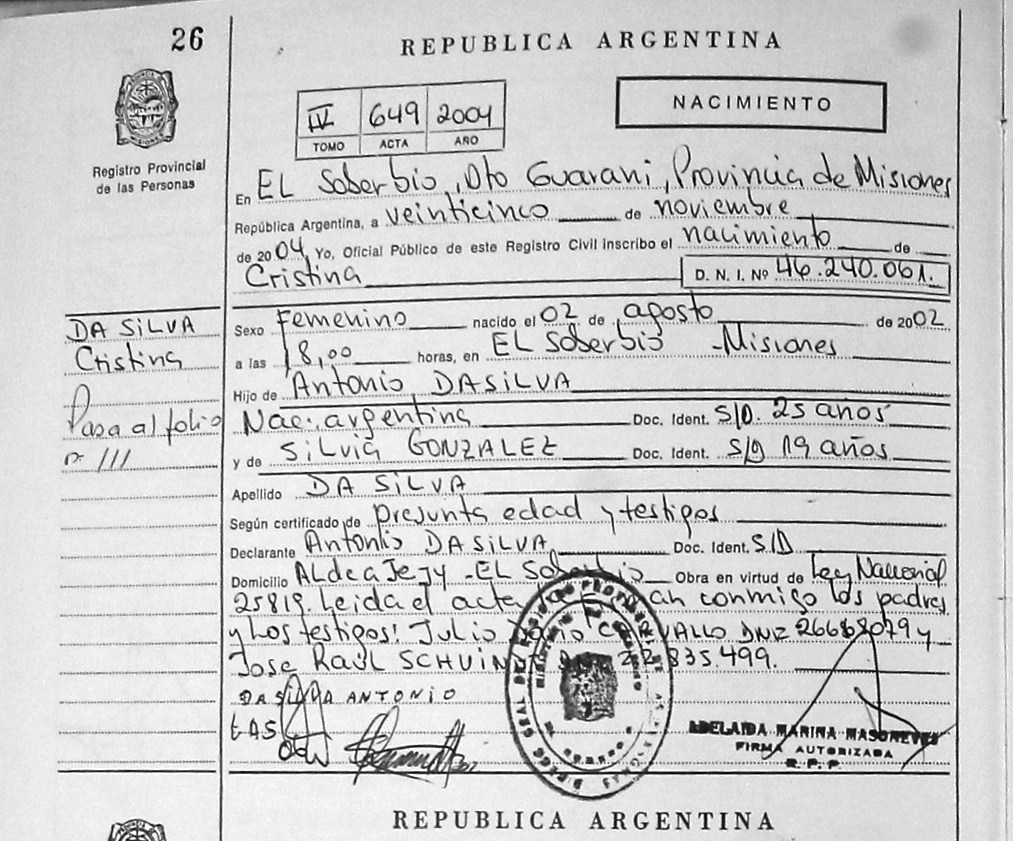 26
REPUBLICA ARGENTINA
NACIMIENTO
IV 649 2004
TOMO ACTA AÑO
Registro Provincial
de las Personas
En EL Soberbio, Dto Guarani, Provincia de Misiones
República Argentina, a veinticinco de noviembre
de 2004, Yo, Oficial Público de este Registro Civil inscribo el nacimiento de
Cristina D. N. I. Nº 46.240.061.
DA SILVA
Cristina
Pasa al folio
nº 111
Sexo Femenino nacido el 02 de agosto de 2002
a las 18,00 horas, en EL Soberbio - Misiones
Hijo de Antonio DA SILVA
Nac. argentina Doc. Ident. S/D. 25 años
y de Silvia GONZALEZ Doc. Ident. S/D 19 años
Apellido DA SILVA
Según certificado de presunta edad y testigos
Declarante Antonio DA SILVA Doc. Ident. S/D
Domicilio ALdea Jejy - EL Soberbio Obra en virtud de Ley Nacional
25819. Leida el acta conmigo los padres
y Los testigos: Julio DNI 26668079 y
Jose RAÚL 835.499.
DASILVA ANTONIO
ADELAIDA MARINA MASONEVES
FIRMA AUTORIZADA
R. P. P.
REPUBLICA ARGENTINA